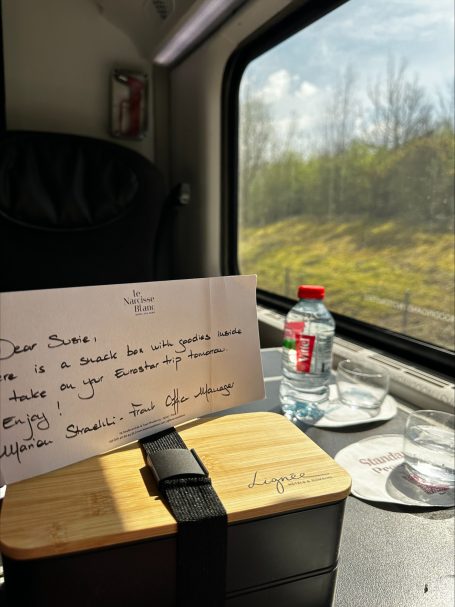 le
Narcisse
Blanc
Dear Susie,
ere is a snack box with goodies inside
take on your Eurostar trip tomorrow.
Enjoy!
Marion - Front Office Manager
Vittel
Lignée
HOTELS &